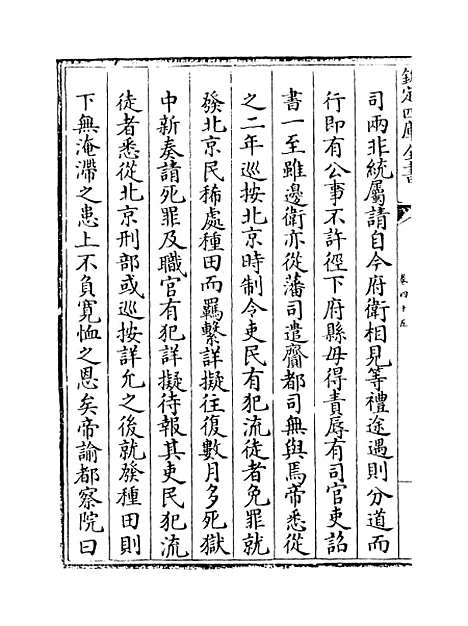 欽定四庫全書
卷四十五
司兩非統屬請自今府衛相見等禮途遇則分道而
行即有公事不許徑下府縣毋得責辱有司官吏詔
書一至雖邊衛亦從藩司遣齎都司無與焉帝悉從
之二年巡按北京時制令吏民有犯流徒者免罪就
發北京民稀處種田而羈繫詳擬往復數月多死獄
中新奏請死罪及職官有犯詳擬待報其吏民犯流
徒者悉從北京刑部或巡按詳允之後就發種田則
下無淹滯之患上不負寛恤之恩矣帝諭都察院曰